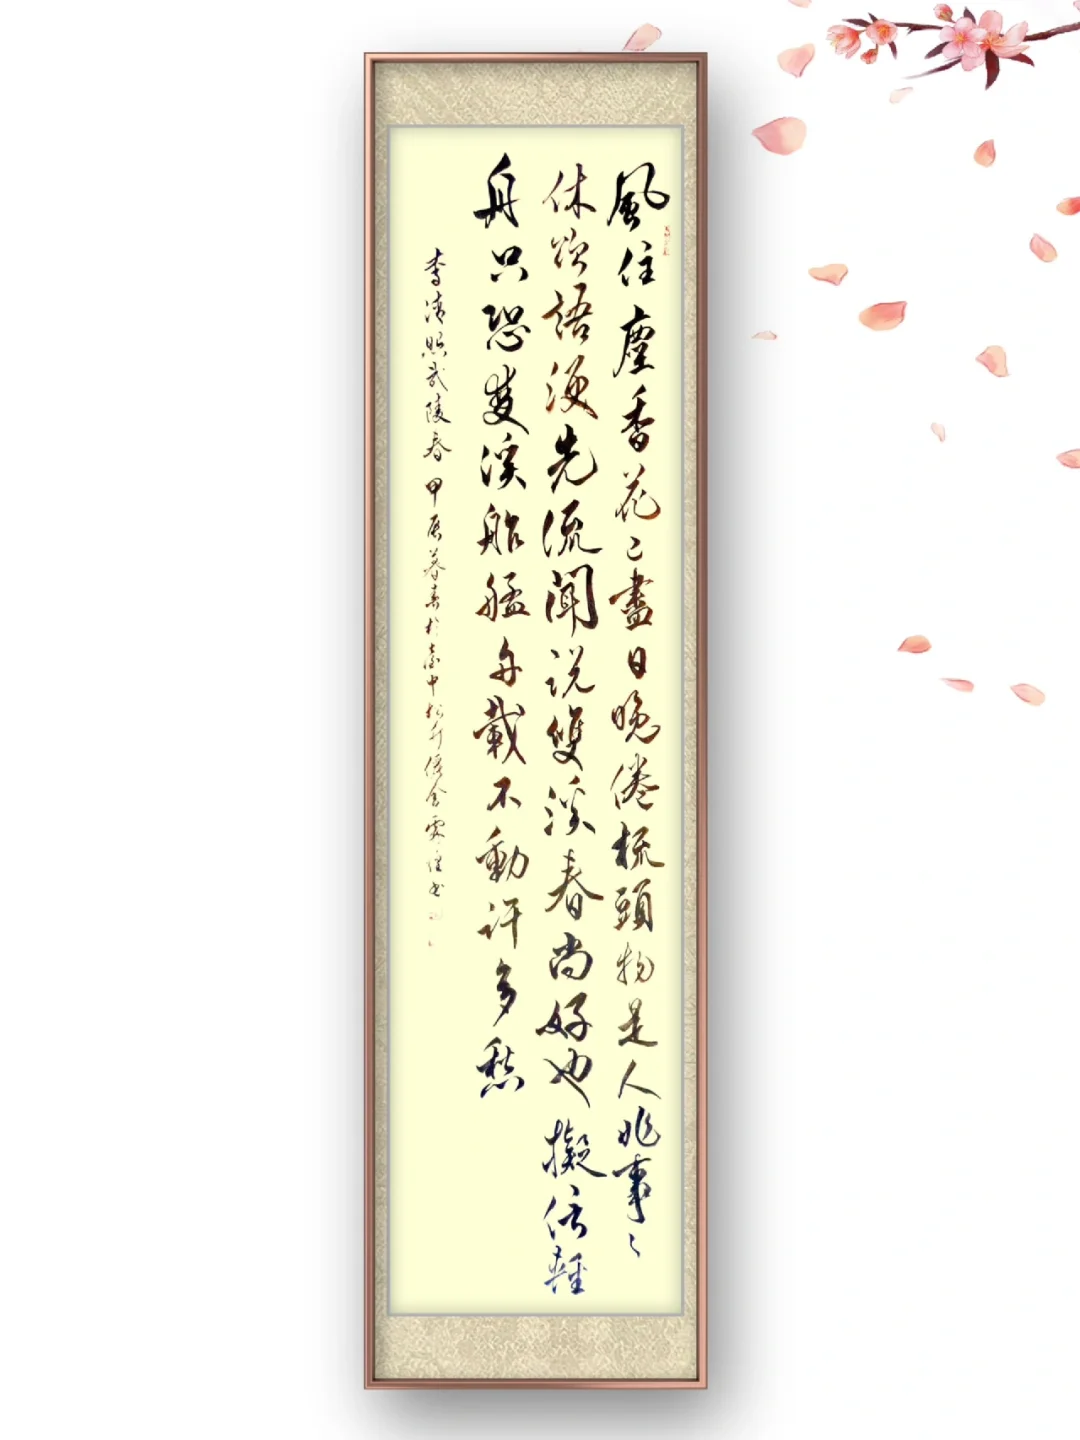 風住塵香花已盡日晚倦梳頭物是人非事〻
休欲語淚先流聞說雙溪春尚好也擬泛輕
舟只恐雙溪舴艋舟載不動許多愁
李清照武陵春甲辰暮春於臺中